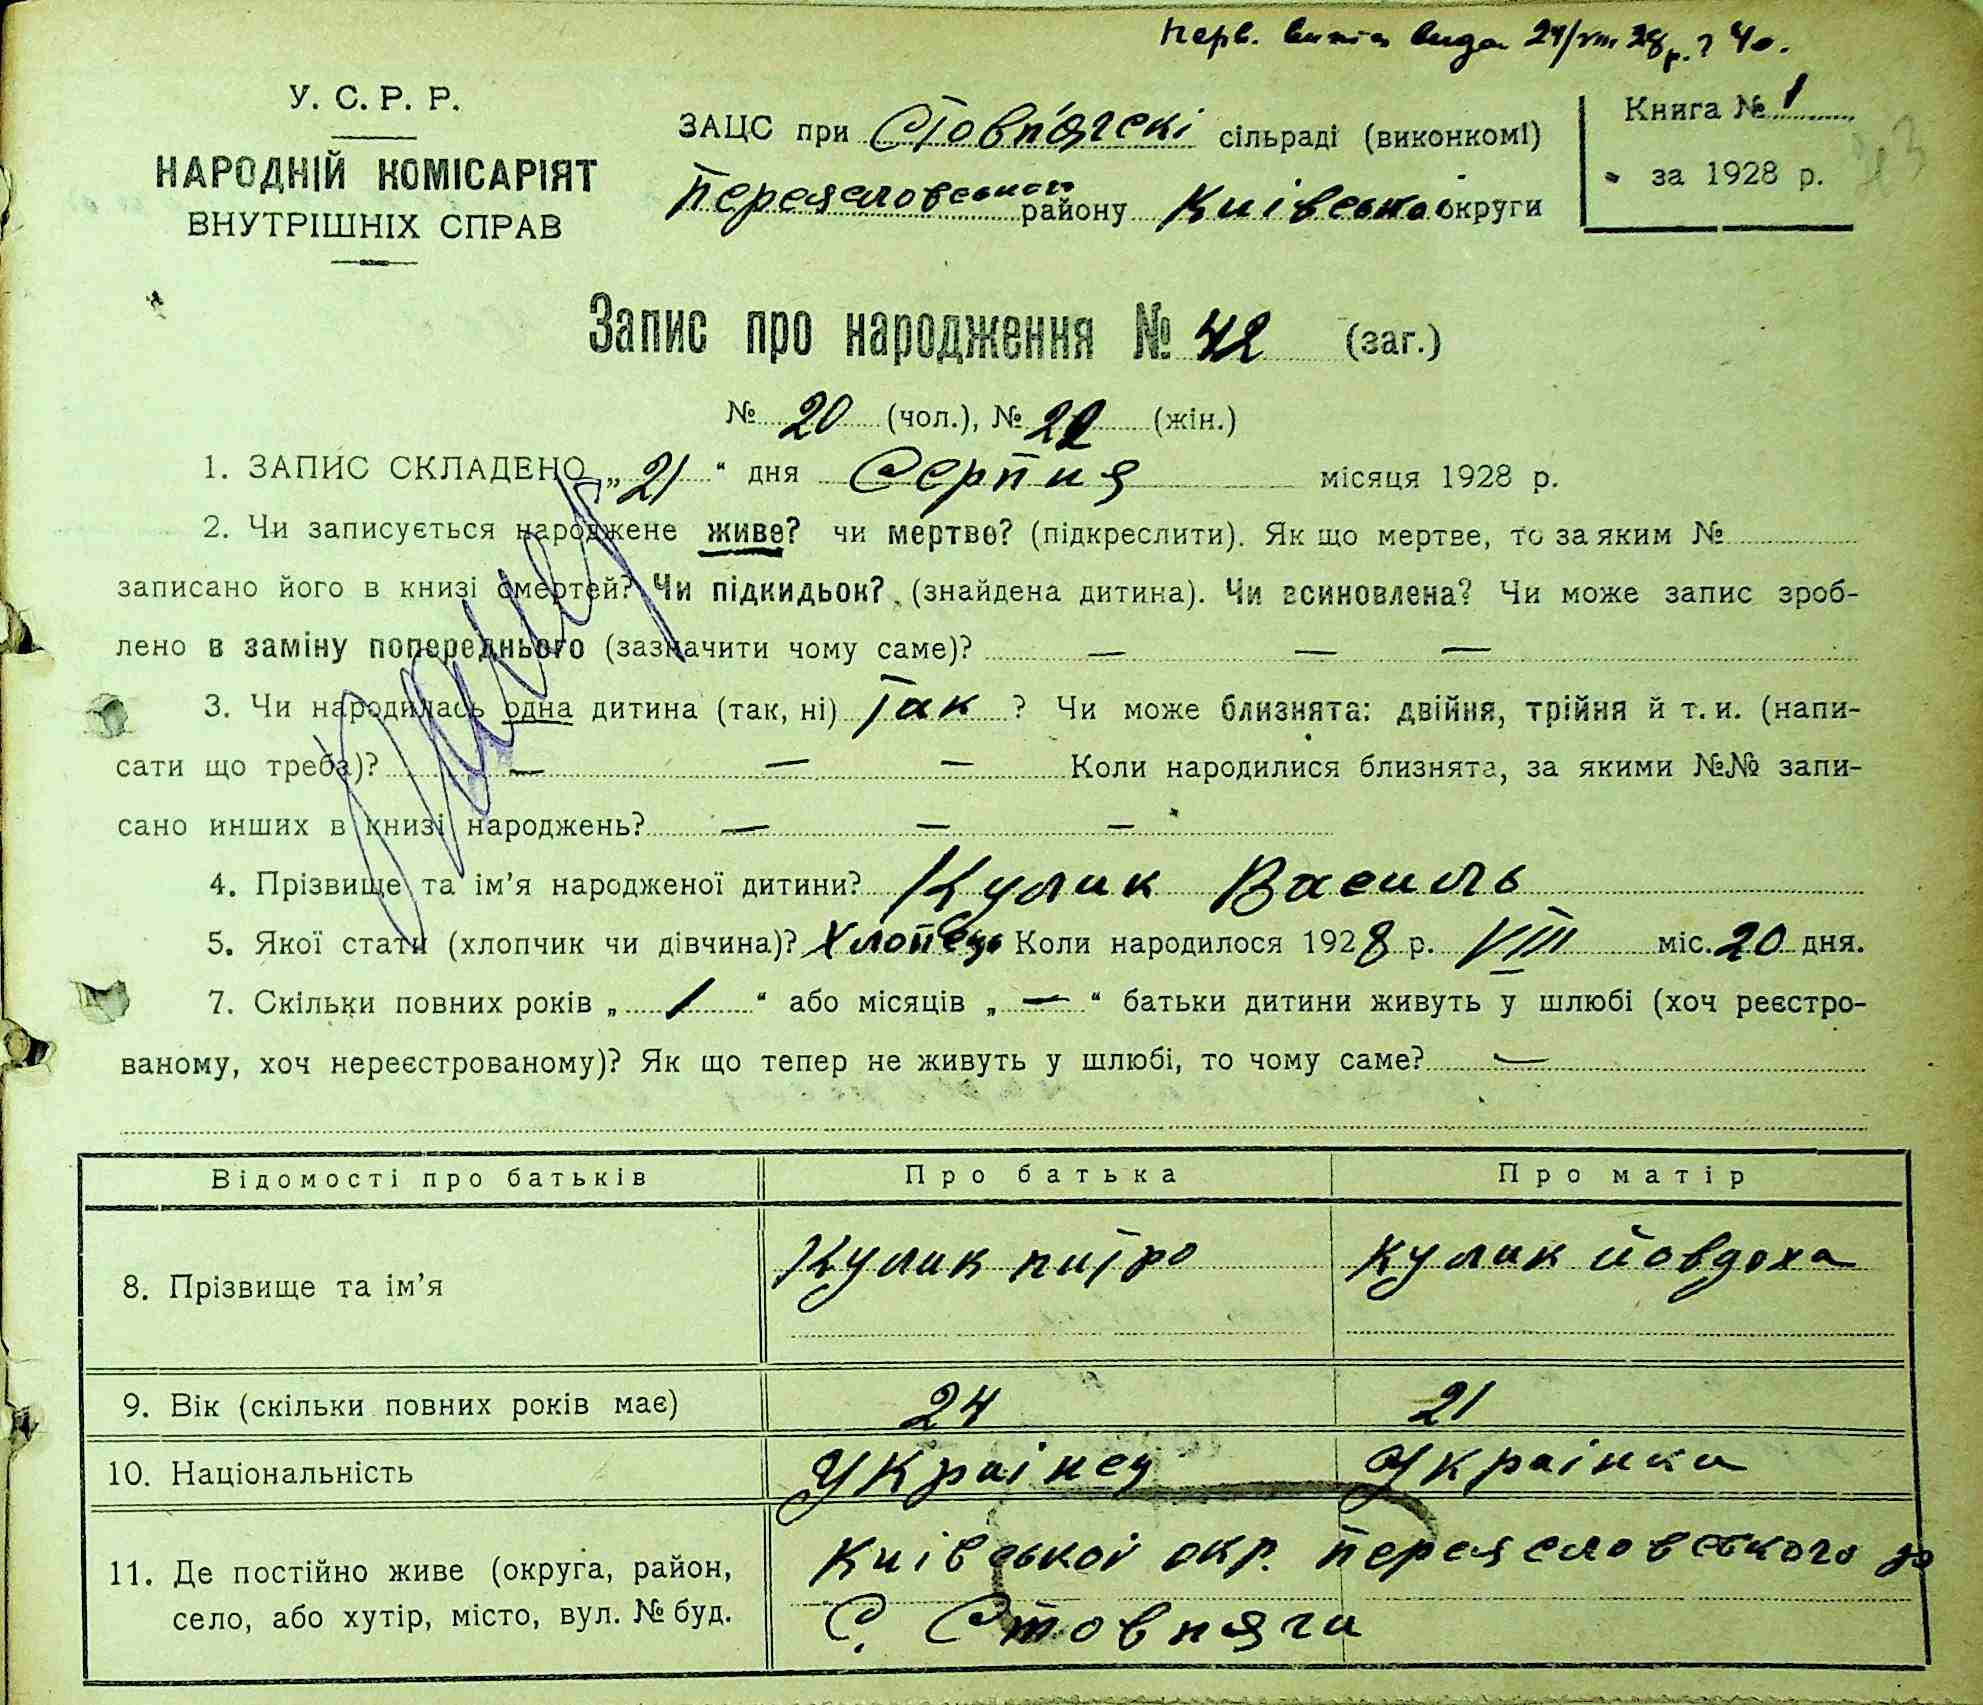 У. С. Р. Р.
НАРОДНІЙ КОМІСАРІЯТ
ВНУТРІШНІХ СПРАВ
ЗАЦС при Стовп'яжскі сільраді (виконкомі)
Переяславського району Київської округи
Книга № 1
за 1928 р.
Запис про народження № 42 (заг.)
№ 20 (чол.), № 22 (жін.)
1. ЗАПИС СКЛАДЕНО „21“ дня Серпня місяця 1928 р.
2. Чи записується народжене живе? чи мертве? (підкреслити). Як що мертве, то за яким №
записано його в книзі смертей? Чи підкидьок? (знайдена дитина). Чи всиновлена? Чи може запис зроб-
лено в заміну попереднього (зазначити чому саме)? — — —
3. Чи народилась одна дитина (так, ні) Так ? Чи може близнята: двійня, трійня й т. и. (напи-
сати що треба)? — — — Коли народилися близнята, за якими №№ запи-
сано инших в книзі народжень? — — —
4. Прізвище та ім'я народженої дитини? Кулик Василь
5. Якої стати (хлопчик чи дівчина)? Хлопець Коли народилося 1928 р. VIII міс. 20 дня.
7. Скільки повних років „1“ або місяців „—“ батьки дитини живуть у шлюбі (хоч реєстро-
ваному, хоч нереєстрованому)? Як що тепер не живуть у шлюбі, то чому саме? —
Відомості про батьків Про батька Про матір
8. Прізвище та ім'я Кулик питро Кулик йовдоха
9. Вік (скільки повних років має) 24 21
10. Національність Украінец Украінка
11. Де постійно живе (округа, район, Київської окр. Переясловського
село, або хутір, місто, вул. № буд. С. Стовпяги